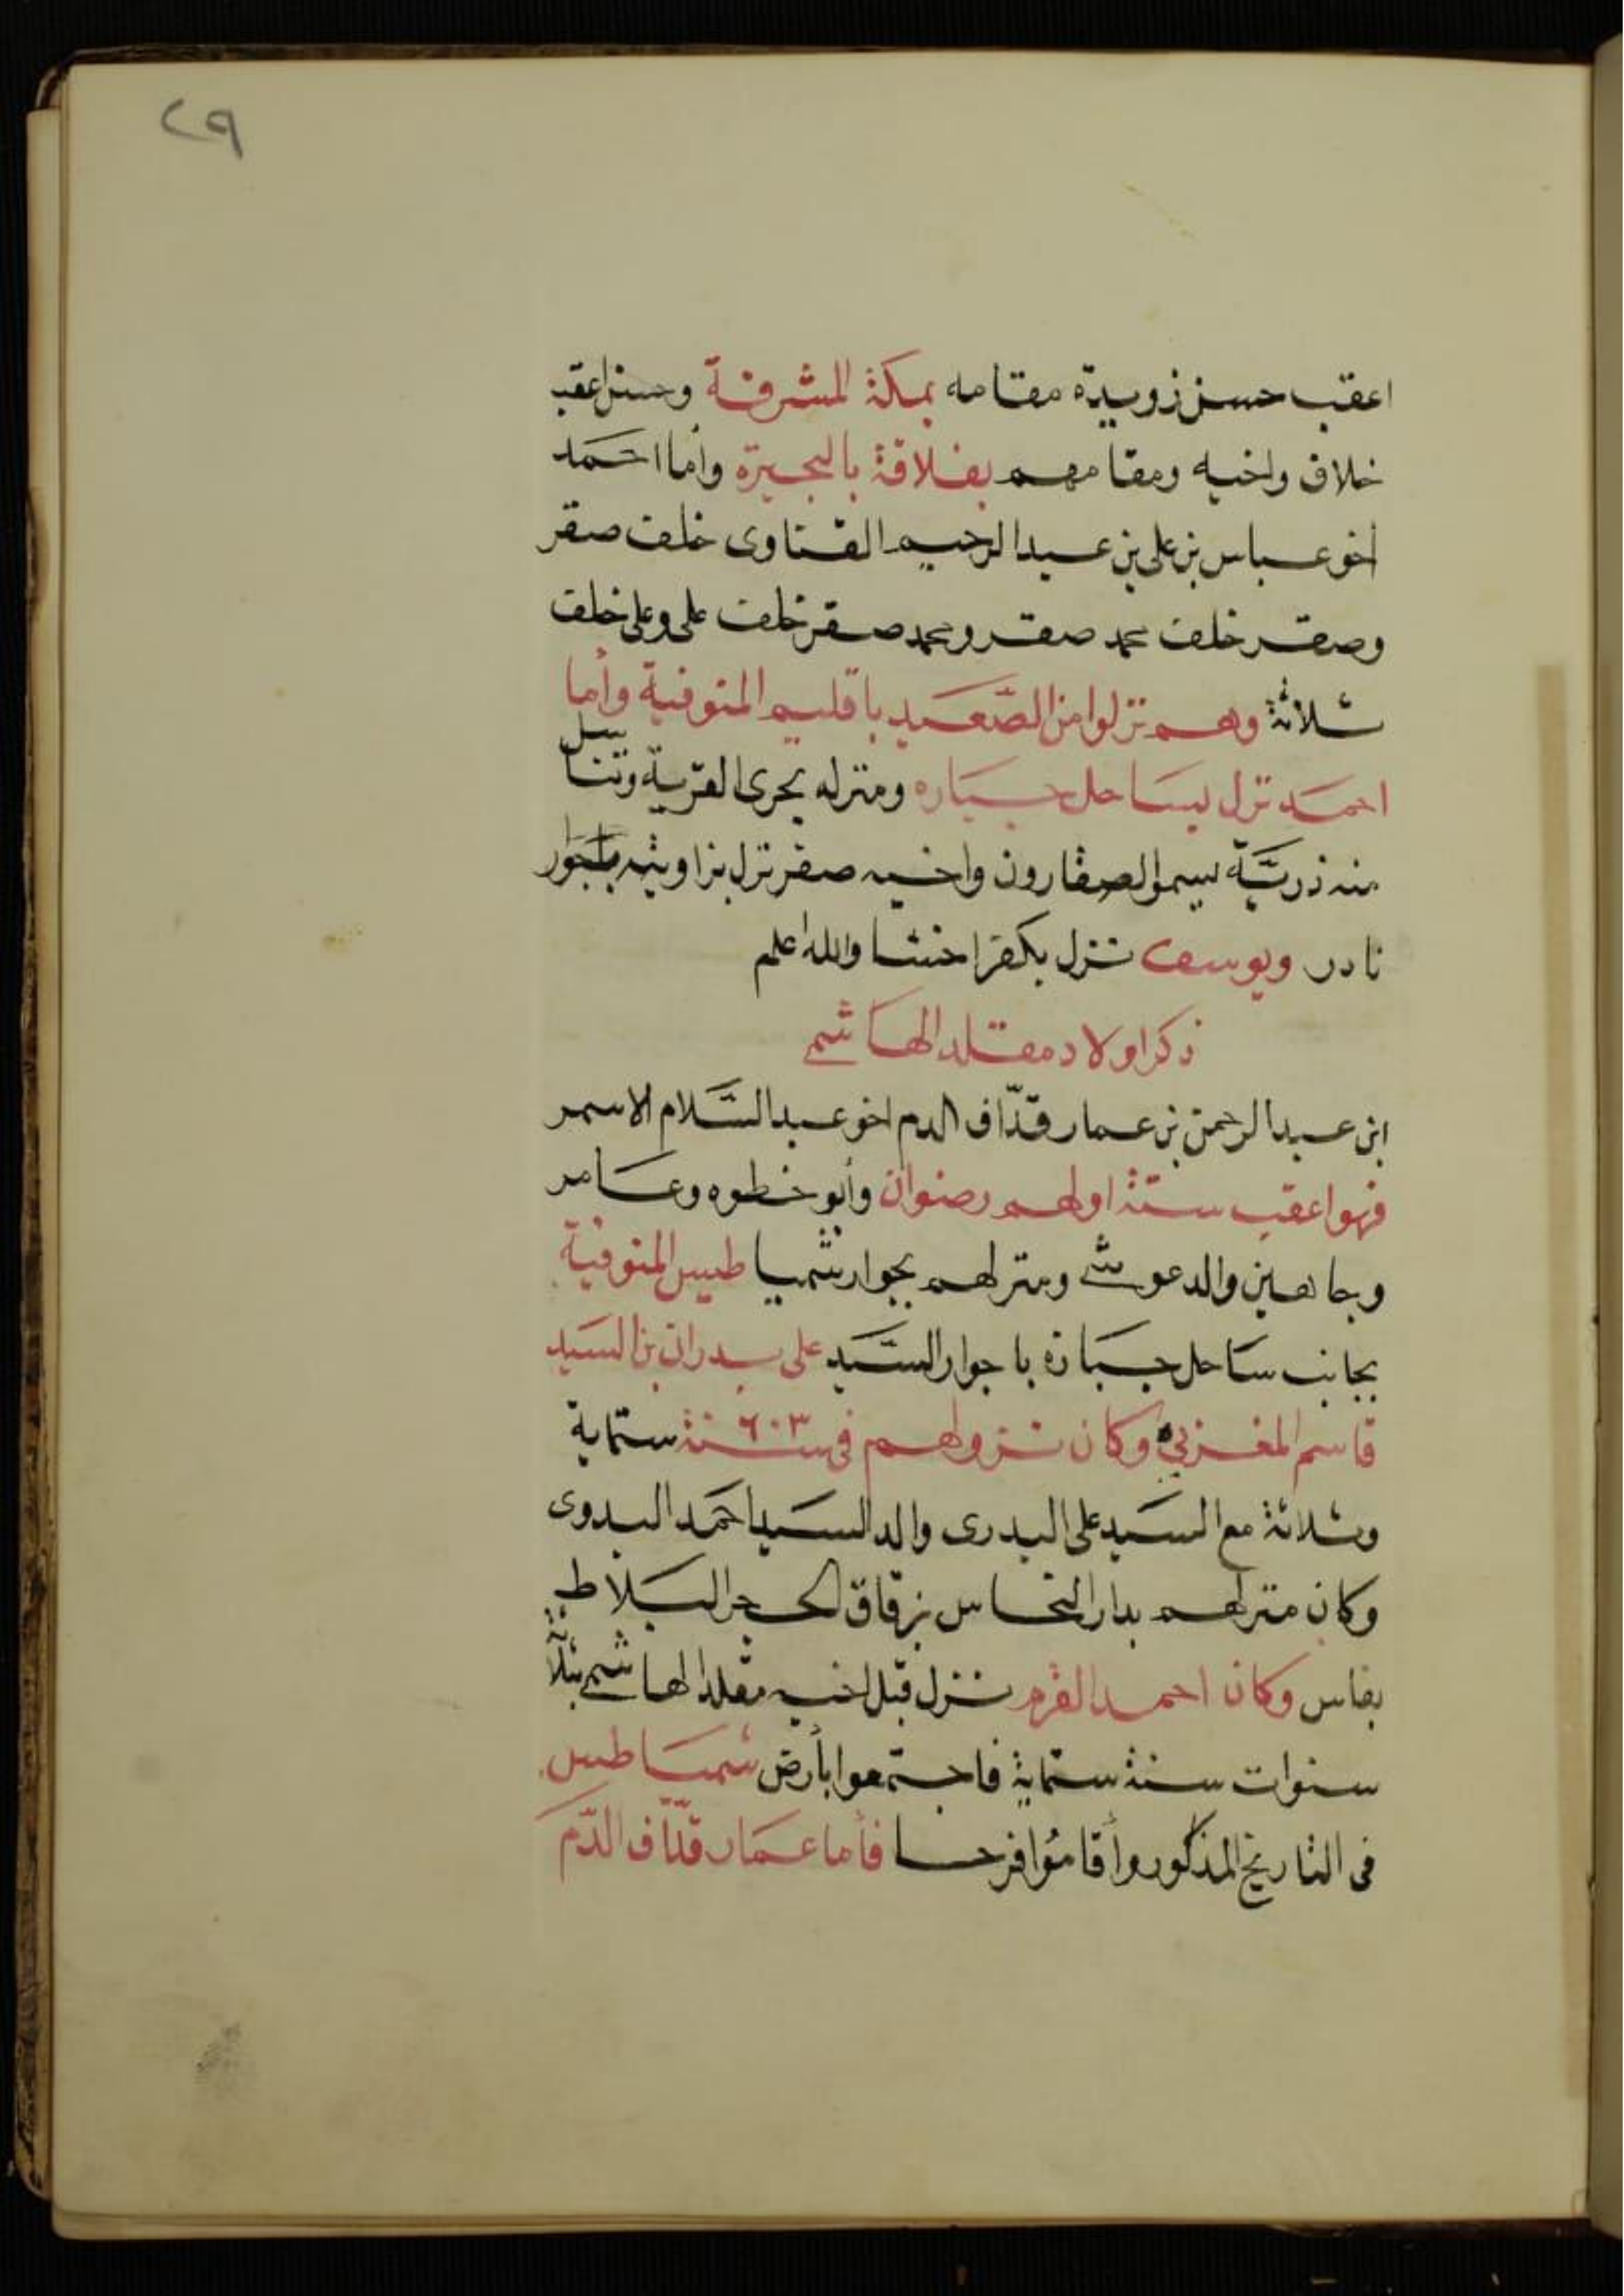 ٢٩
اعقب حسن زويدة مقامه بمكة المشرفة وحسن اعقب
خلاف واخيه ومقامهم بفلاقة بالبحيرة وأما احمد
اخو عباس بن على بن عبد الرحيم القناوى خلف صقر
وصقر خلف محمد صقر ومحمد صقر خلف على وعلى خلف
ثلاثة وهم نزلوا من الصعيد باقليم المنوفية وأما
احمد نزل بساحل جباره ومنزله بحرى القرية وتناسل
منه ذريَّة يسموا الصقارون واخيه صقر نزل بزاويته بالجوار
نادر ويوسف نزل بكفر اخشا والله اعلم
ذكر اولاد مقلد الهاشمى
ابن عبد الرحمن بن عمار قدّاف الدم اخو عبد السَّلام الاسمر
فهو اعقب ستة اولهم رضوان وأبو خطوه وعامر
وجاهين والدعوشى ومنزلهم بجوار شمياطيس المنوفية
بجانب ساحل جبارة باجوار السَّيد على بدران بن السيد
قاسم المغربي وكان نزولهم فى سنة ٦٠٣ ستماية
وثلاثة مع السيد على البدرى والد السيد احمد البدوى
وكان منزلهم بدار النحاس بزقاق الحجر البلاط
بفاس وكان احمد القرم نزل قبل اخيه مقلد الهاشمى بثلاثة
سنوات سنة ستماية فاجتمعوا بأرض شمياطيس
فى التاريخ المذكور وأقامُوا فرحا فأما عمار قدّاف الدّم